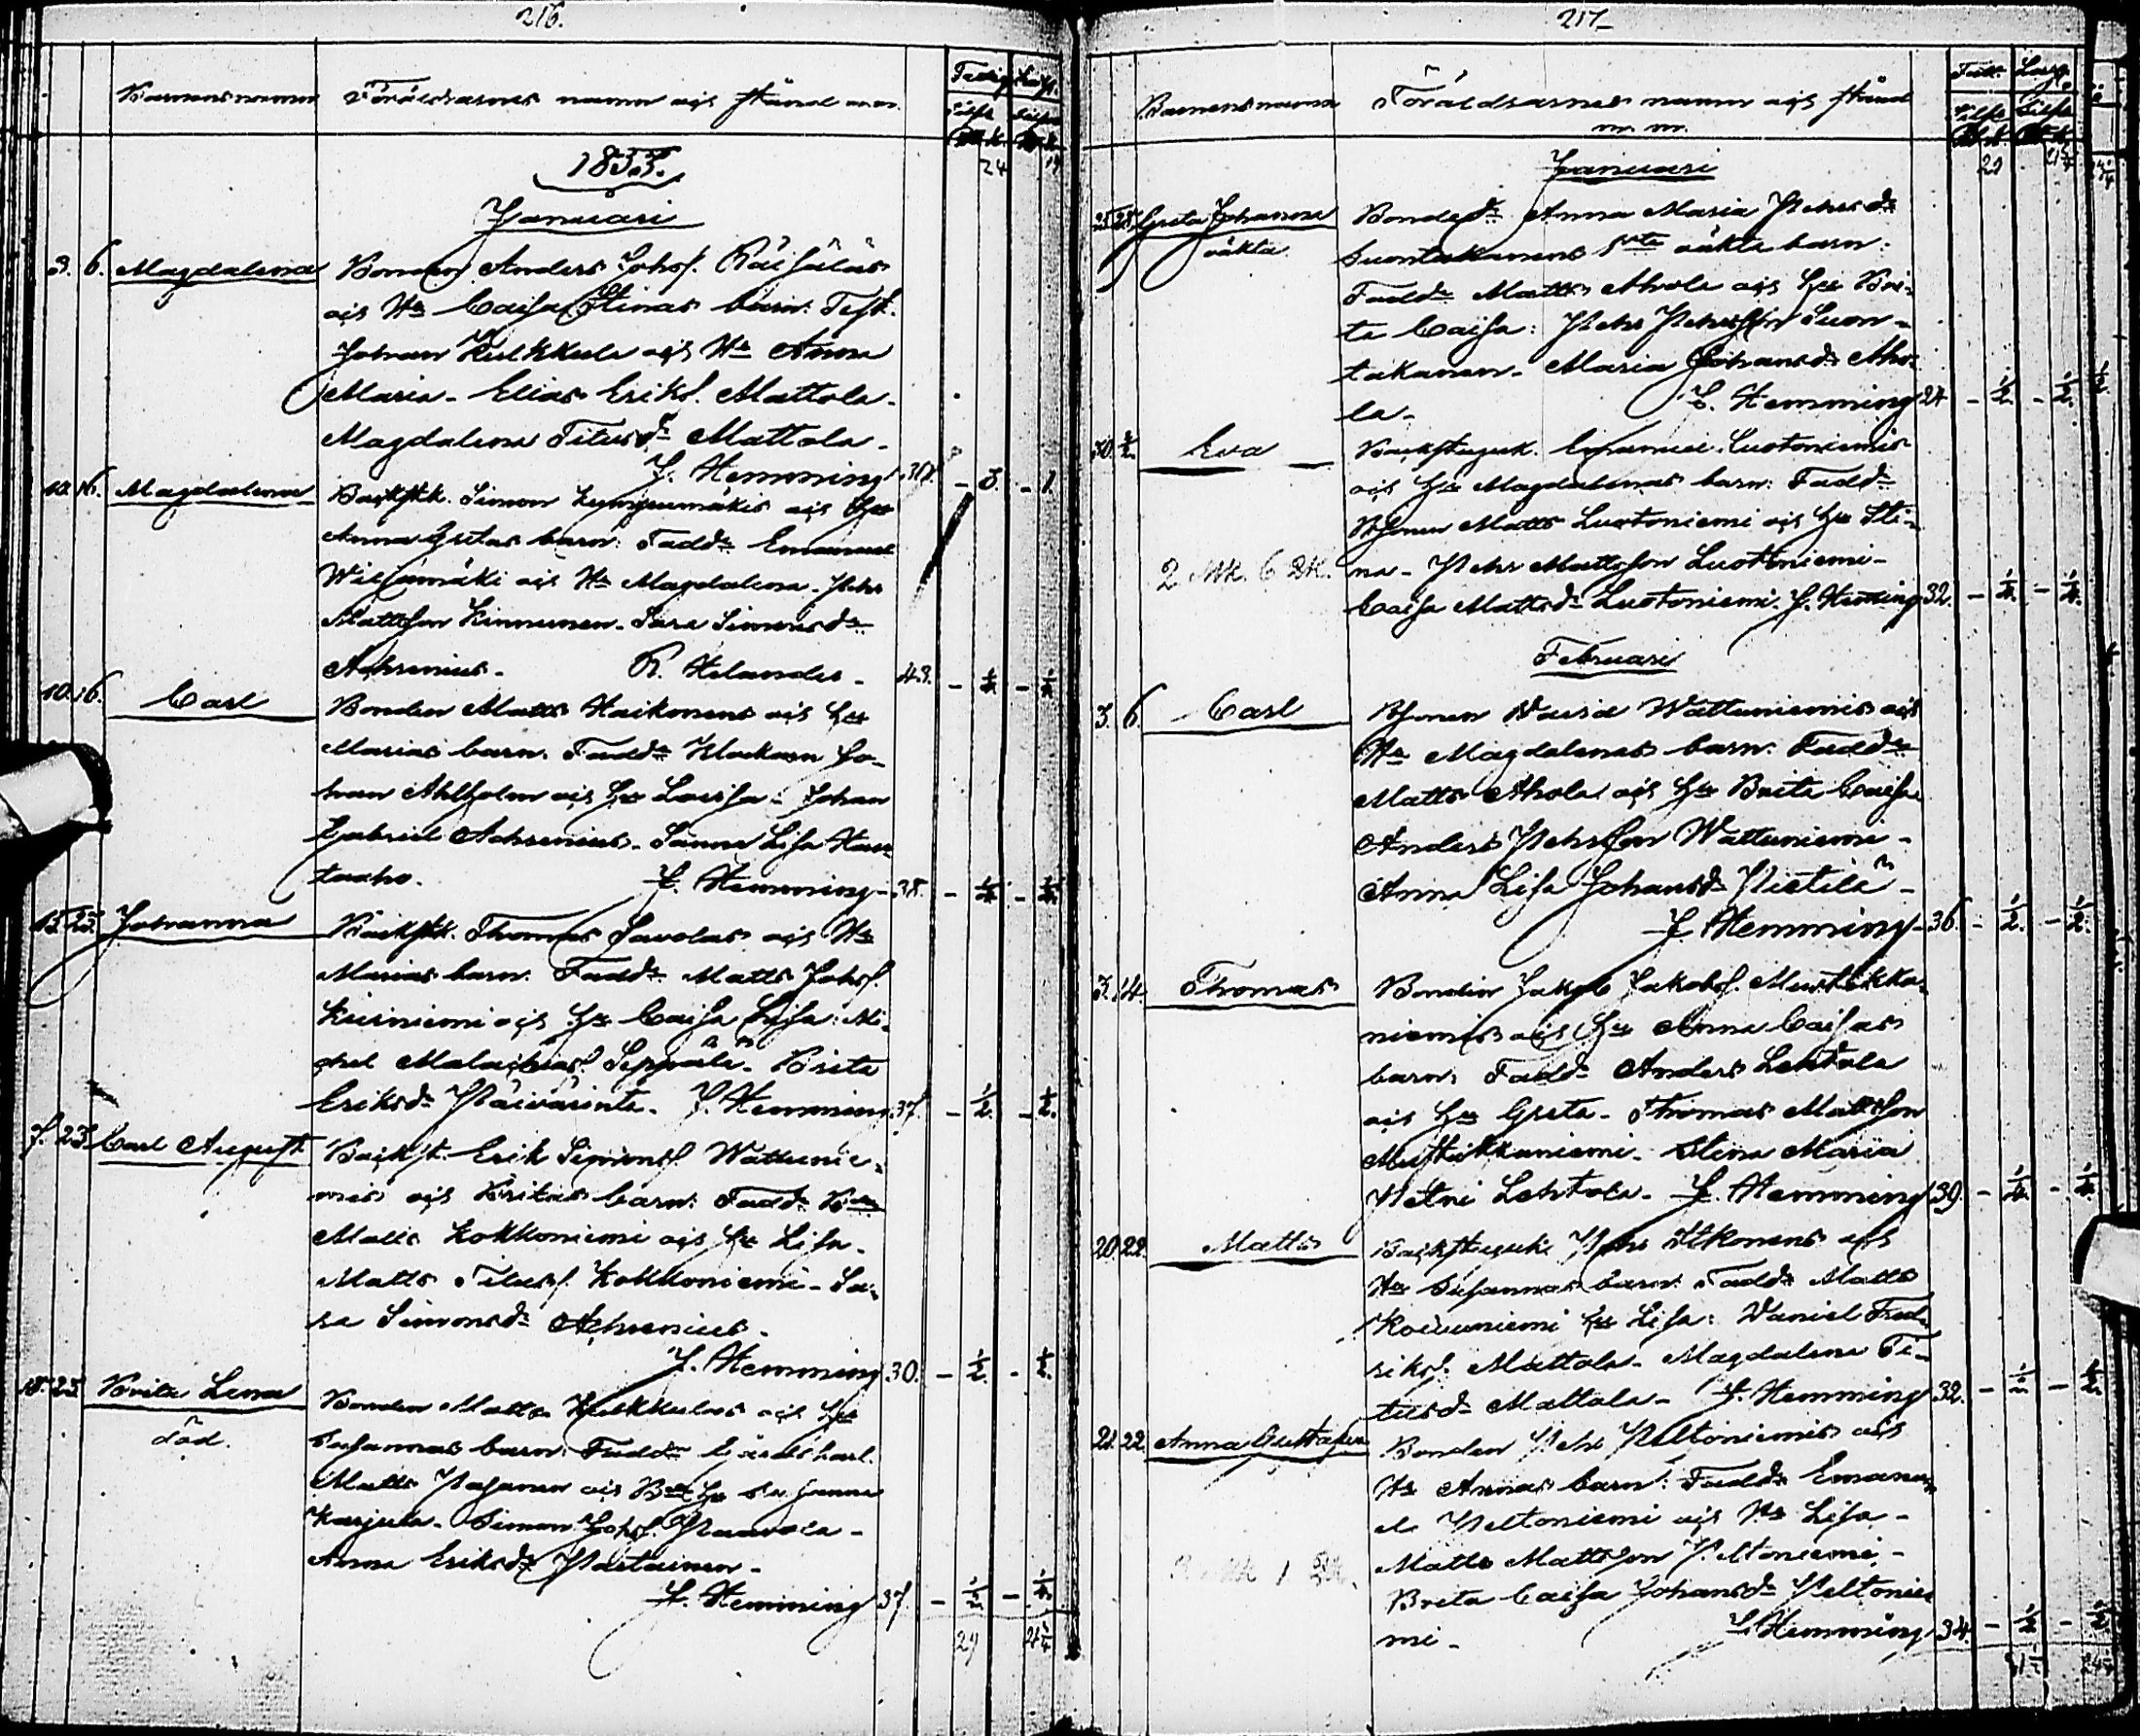 216.
Barnens namn Föräldrarnes namn och stånd m.m.
1833.
Januari
3. 6. Magdalena Bonden Anders Johs.
och Hu Caisa Stinas barn: Test.
Johan Kulkkula och Hu Anna
Maria - Elias Eriks. Mattola -
Magdalena Titusdr Mattola -
J. Hemming. 30. - 3. - 1.
10. 16. Magdalena Backstk. Simon och Hu
Anna Gretas barn: Faddr Emanuel
Wiljamäki och Hu Magdalena - Pehr
Mattsson Kinnunen - Sara Simonsdr
Achrenius - R. Helander - 43.
10. 16. Carl Bonden Matts Haikonens och Hu
Marias barn. Faddr Klockarn Jo-
han Ahlholm och Hu Lovisa - Johan
Gabriel Achrenius - Sanna Lisa Hau-
taaho. J. Hemming - 38.
15. 23. Johanna Backstk. Thomas Savolas och Hu
Marias barn. Faddr Matts Johs.
Kiiniemi och Hu Caisa Lisa: Mi-
chel Malachias. Seppälä - Brita
Eriksdr Päivärinta. J. Hemming. 37. - 1/2. - 1/2.
7. 23. Carl August Backst. Erik Simons. Wattunie-
mis och Britas barn: Faddr
Matts Kokkoniemi och Hu Lisa -
Matts Titus. Kokkoniemi - Sa-
ra Simonsdr Achrenius.
J. Hemming 30. - 1/2. - 1/2.
18. 25. Brita Lena Bonden Matts Kulkkulas och Hu
död. Susannas barn: Faddr
Matts Pasanen och Hu Susanna
Karjula - Simon Johs. Paavola -
Anna Eriksdr
J. Hemming 37.
29
217
Barnens namn Föräldrarnes namn och stånd
m. m.
Januari
25. 28. Greta Johanna Bondedr Anna Maria Pehrsdr
oäkta Suontakanens 1sta oäkta barn:
Faddr Matts Ahola och Hu Bri-
ta Caisa: Pehr Pehrsson Suon-
takanen - Maria Johansdr Aho-
la - J. Hemming 24 - 1/2. - 1/2.
30. Eva Backstuguk. Emanuel Luotoniemis
och Hu Magdalenas barn: Faddr
Matts Luotoniemi och Hu Sti-
2 Mk. 6 na - Pehr Mattsson Luotoniemi -
Caisa Mattsdr Luotoniemi. J. Hemming 32.
Februari
3. 6. Carl David Wattuniemis och
Hu Magdalenas barn: Faddr
Matts Ahola och Hu Brita Caisa
Anders Pehrsson Wattuniemi -
Anna Lisa Johansdr Pietilä -
J. Hemming - 36. - 1/2. - 1/2.
3. 14. Thomas Bonden Jakob Jakobs. Mustikka-
niemis och Hu Anna Caisas
barn: Faddr Anders Lehtola
och Hu Greta - Thomas Mattsson
Mustikkaniemi - Stina Maria
Lehtola - J. Hemming 39.
20. 22. Matts Backstuguk. Pehr Itkonens och
Hu Susannas barn: Faddr Matts
Koivuniemi Hu Lisa: Daniel Fred-
riks. Mattola - Magdalena Ti-
tusdr Mattola - J. Hemming 32.
21. 22. Anna Gustafva Bonden Pehr Peltoniemis och
Hu Annas barn: Faddr Emanu-
el Peltoniemi och Hu Lisa -
Matts Mattsson Peltoniemi -
Brita Caisa Johansdr Peltonie-
mi - J. Hemming 34.